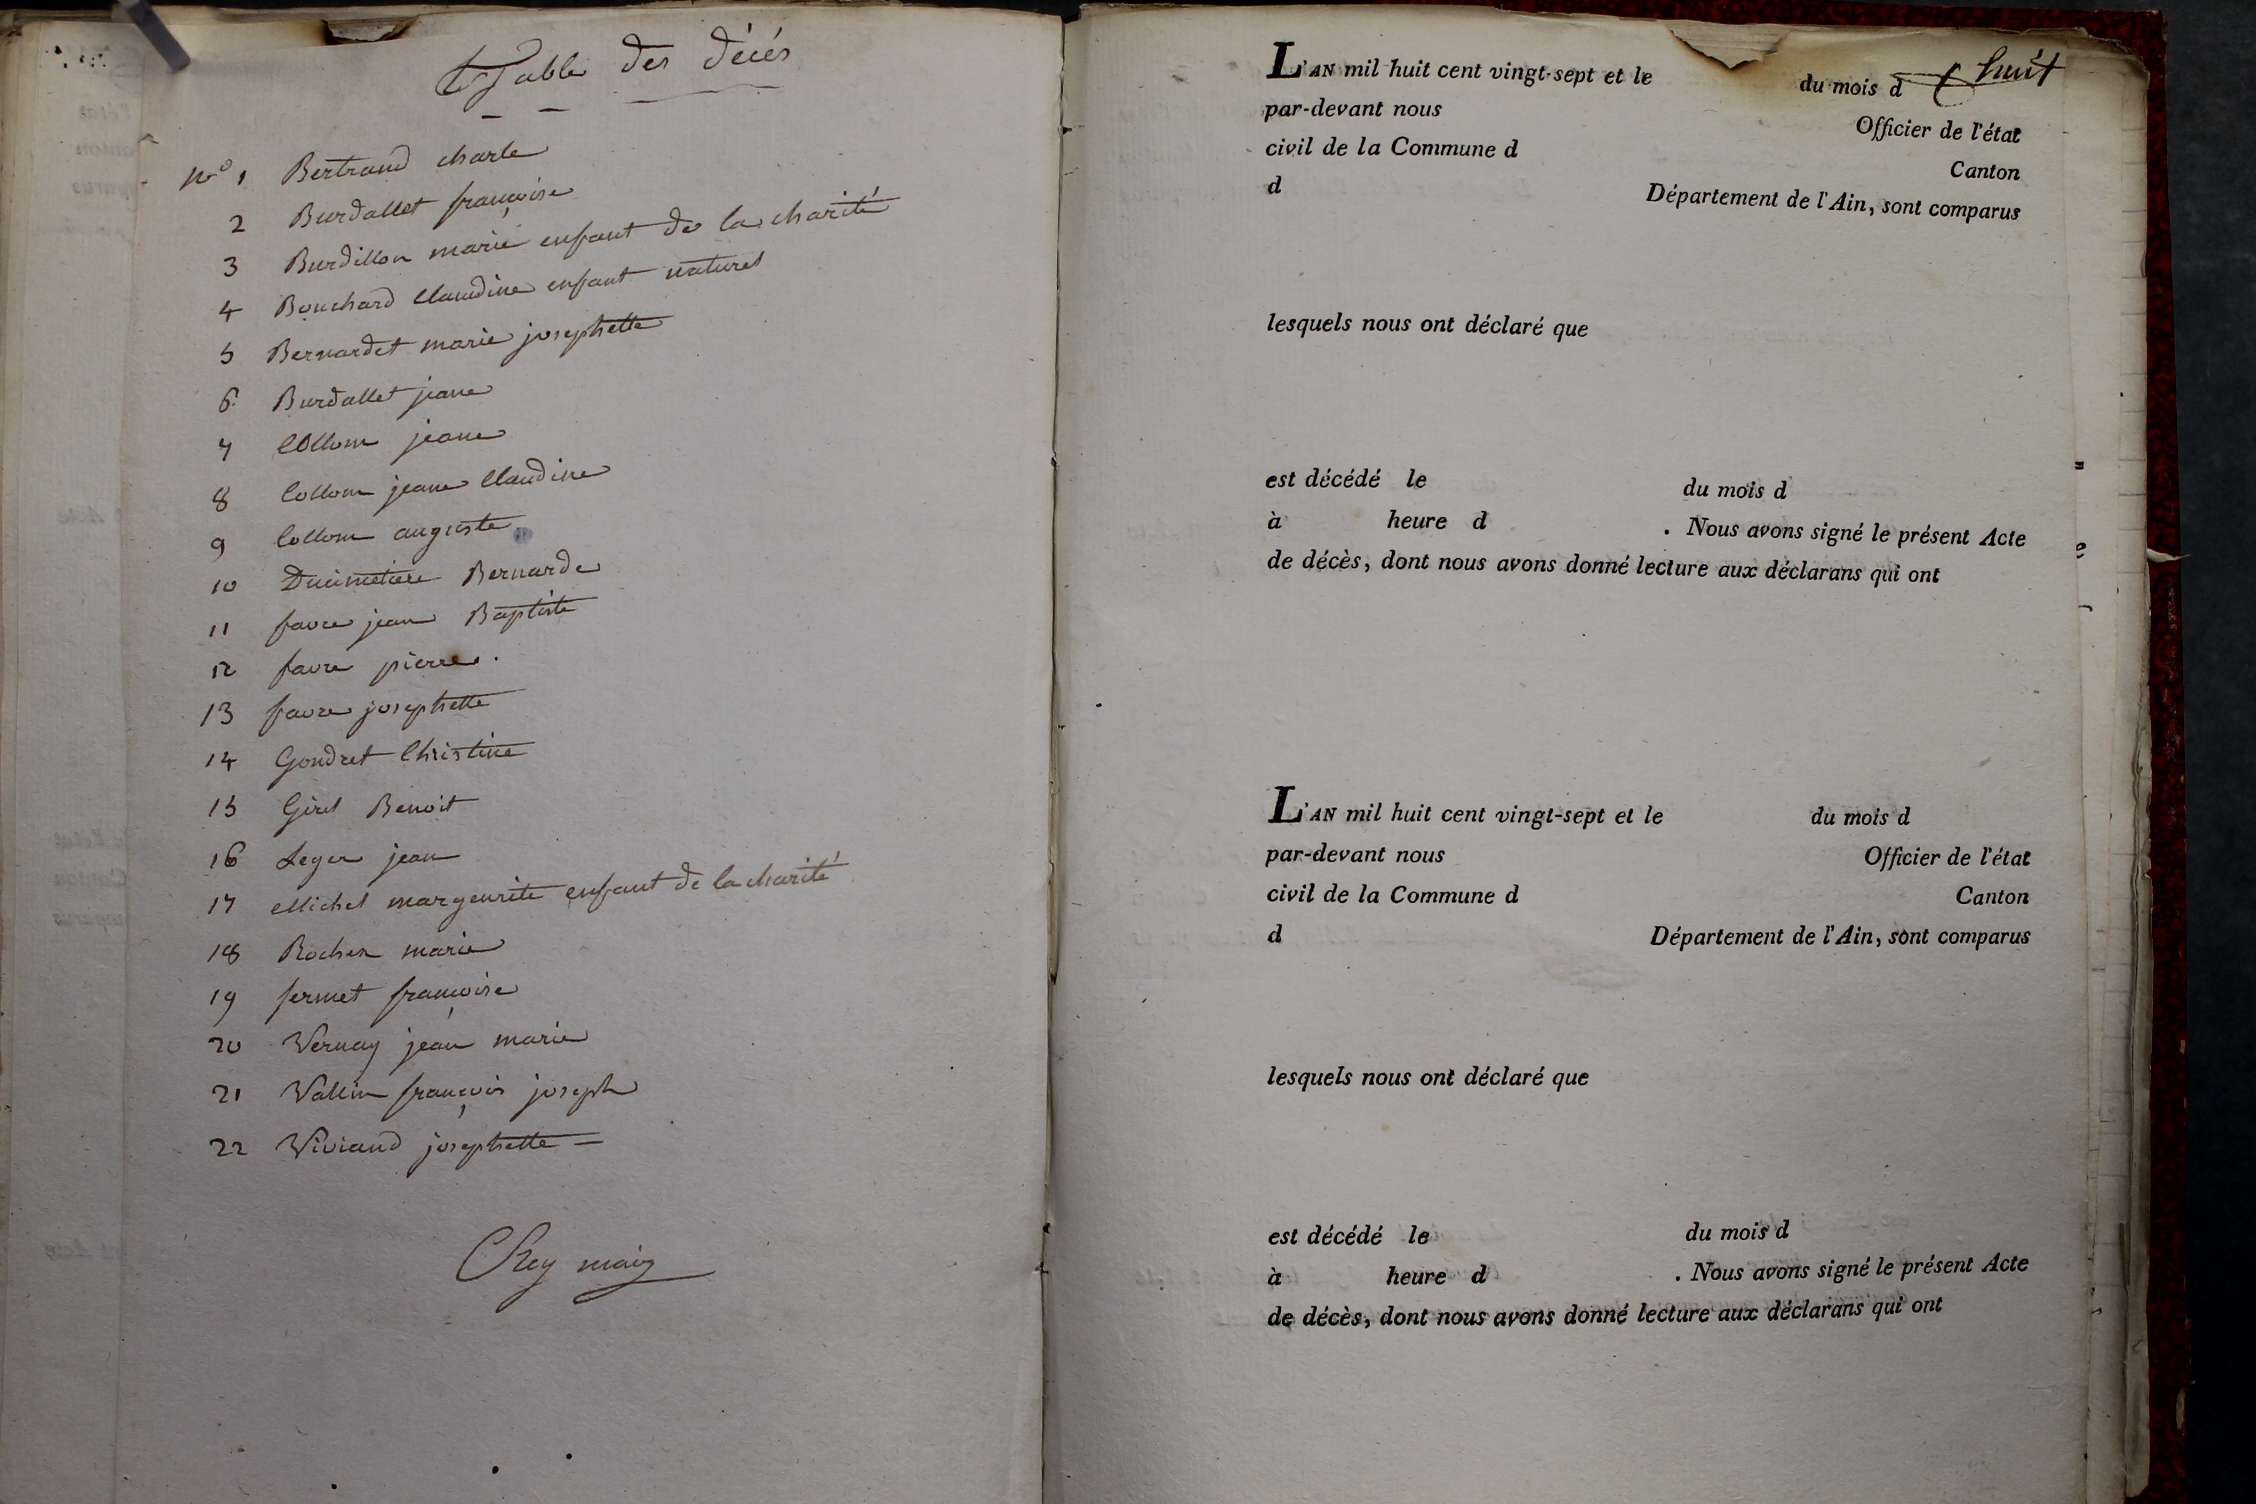 Table des décés
No 1 Bertrand charle
2 Burdallet françoise
3 Burdillon marie enfant de la charité
4 Bouchard Claudine enfant naturel
5 Bernardet marie josephette
6 Burdallet jeane
7 Collom jeane
8 Collom jeane Claudine
9 Collom auguste
10 Ducimetiere Bernarde
11 favre jean Baptiste
12 favre pierre
13 favre josephette
14 Gondret Christine
15 Girel Benoit
16 Leger jean
17 Michel margeurite enfant de la charité
18 Rocher marie
19 fermet françoise
20 Vernay jean marie
21 Vallin françois joseph
22 Viviand josephette
Rey maire
huit
L'AN mil huit cent vingt-sept et le du mois d
par-devant nous Officier de l'état
civil de la Commune d Canton
d Département de l'Ain, sont comparus
lesquels nous ont déclaré que
est décédé le du mois d
à heure d . Nous avons signé le présent Acte
de décès, dont nous avons donné lecture aux déclarans qui ont
L'AN mil huit cent vingt-sept et le du mois d
par-devant nous Officier de l'état
civil de la Commune d Canton
d Département de l'Ain, sont comparus
lesquels nous ont déclaré que
est décédé le du mois d
à heure d . Nous avons signé le présent Acte
de décès, dont nous avons donné lecture aux déclarans qui ont